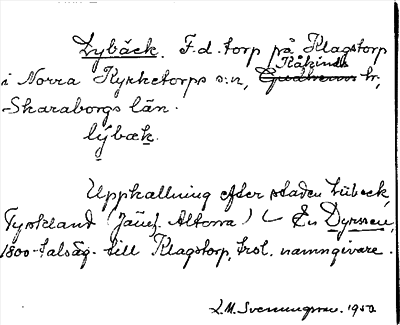 Lybäck. F.d. torp på Klagstorp
Kåkinds
i Norra Kyrketorps s:n, Gudhems hd,
Skaraborgs län.
lýbæk.
Uppkallning efter staden Lübeck,
Tyskland (Jämf. Altona) En Dyrssen,
1800-talsäg. till Klagstorp, trol. namngivare.
L.M. Svenungsson. 1950